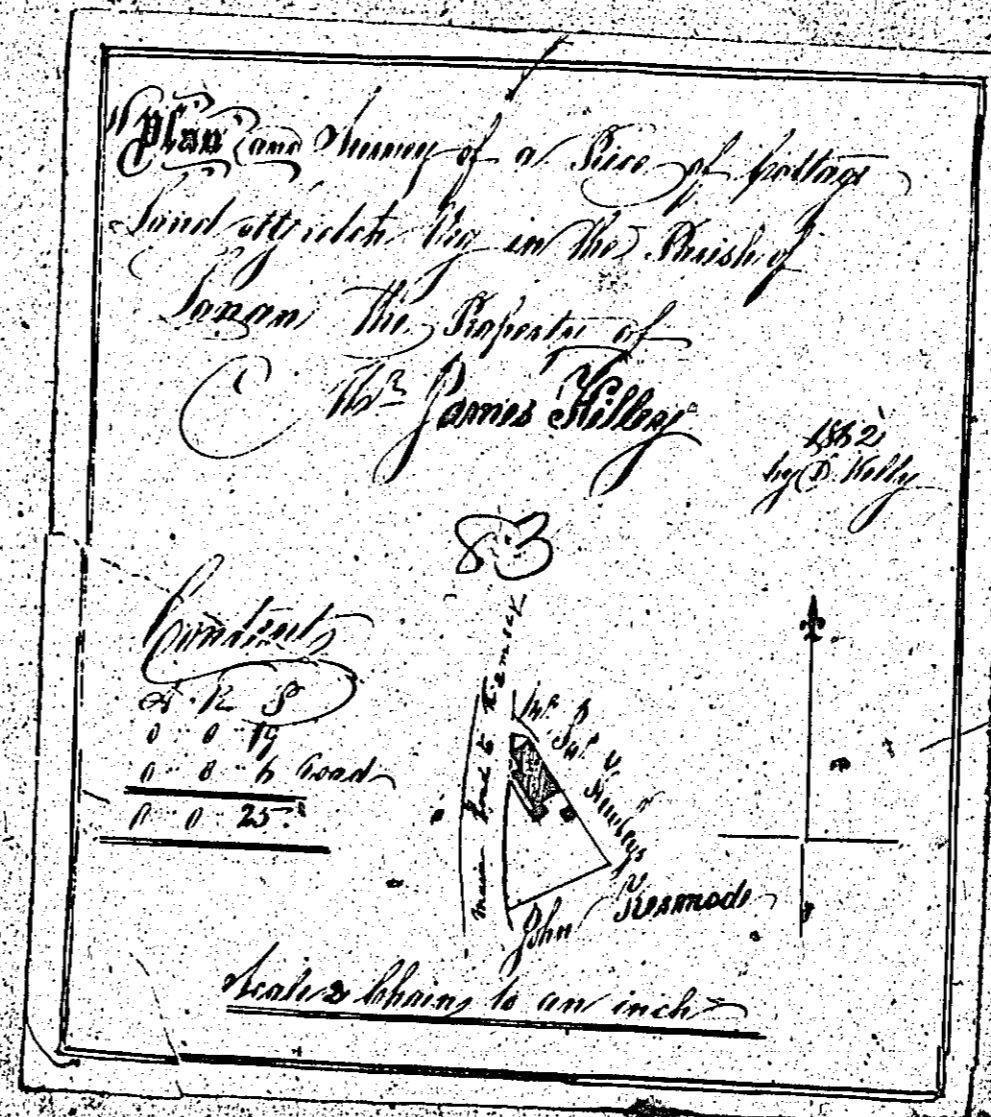 Plan and Survey of a Piece of Cottage
Land at in the Parish of
Lonan the Property of
Mr James Killey
1862
by D. Kelly
83
Contents
A R P
0 .. 0 .. 19
0 .. 0 .. 6 Road
0 .. 0 .. 25
Main Road to Ramsey
John Kermode
Scale 2 Chains to an inch